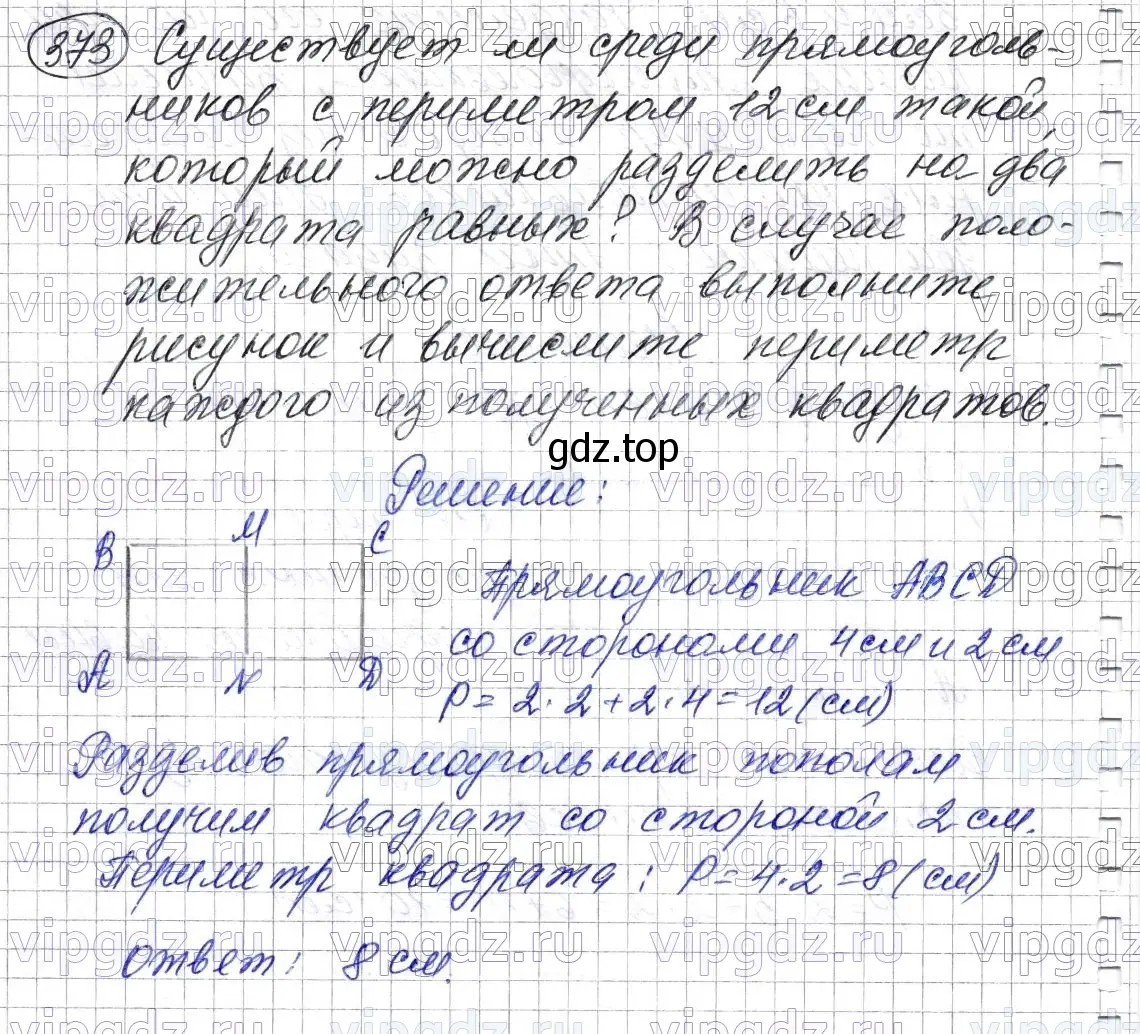 373 Существует ли среди прямоуголь-
ников с периметром 12 см такой,
который можно разделить на два
квадрата равных? В случае поло-
жительного ответа выполните
рисунок и вычислите периметр
каждого из полученных квадратов.
gdz.top
Решение:
B M C
A N D
Прямоугольник ABCD
со сторонами 4 см и 2 см
P = 2 · 2 + 2 · 4 = 12 (см)
Разделив прямоугольник пополам
получим квадрат со стороной 2 см.
Периметр квадрата: P = 4 · 2 = 8 (см)
ответ: 8 см.
vipgdz.ru